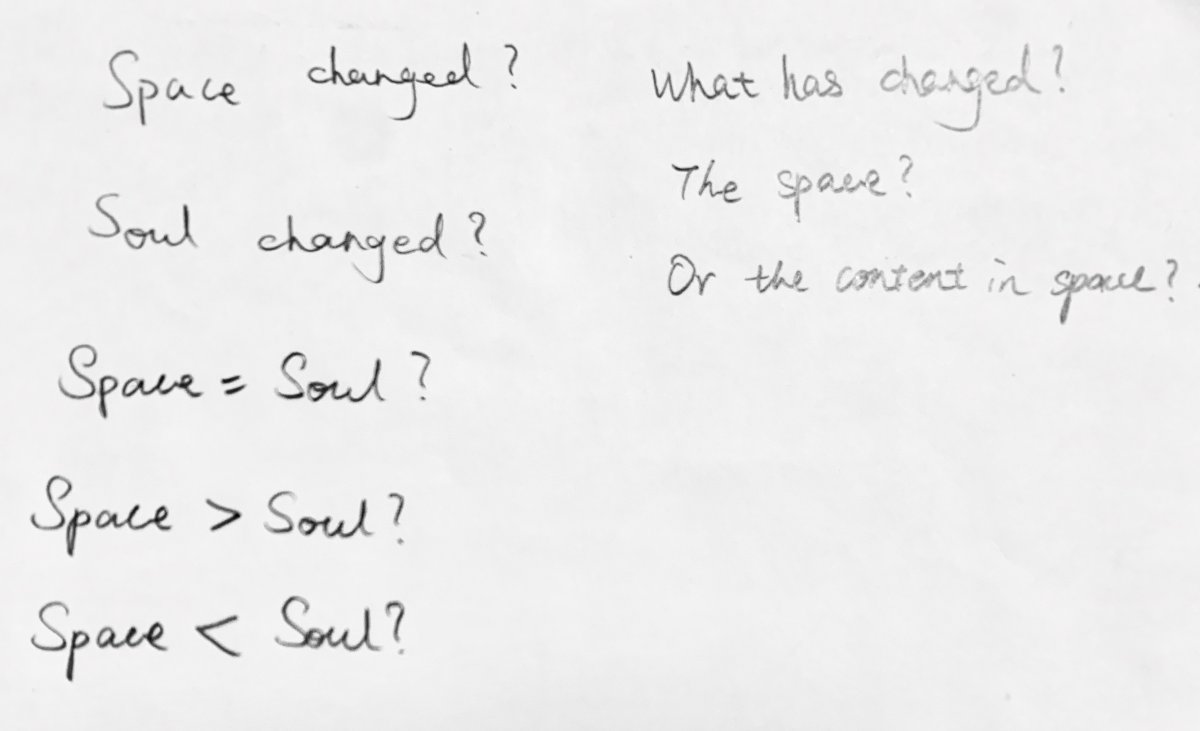 Space changed?
Soul changed?
Space = Soul?
Space > Soul?
Space < Soul?
What has changed?
The space?
Or the content in space?